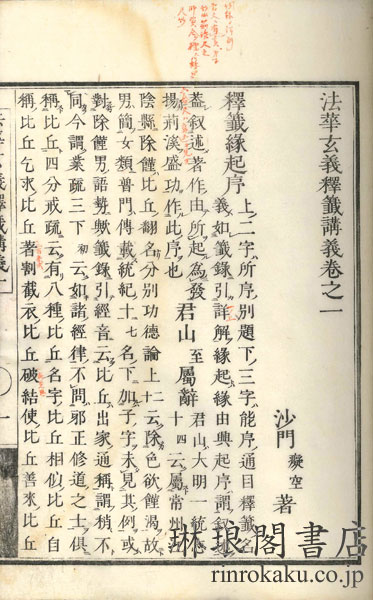 法華玄義釋籤講義卷之一
沙門 癡空 著
釋籤緣起序 上二字所序別題下三字能序通目釋籤名
義如籤錄引詳解緣起緣由興起序謂叙
蓋叙述著作由所起為發 君山 至 屬辭 君山大明一統志
揚荊溪盛功作此序也 十四云屬常州江
陰縣除饉比丘翻名分別功德論上十二云除色欲饉渴故
男簡女類普門傳載統紀十七名下加子字未見其例或
對除饉男語勢歟籤錄引經音云比丘出家通稱謂稍不
同今謂業疏三下初云如諸經律不問邪正修道之士俱
稱比丘四分戒疏云有八種比丘名字比丘相似比丘自
稱比丘乞求比丘著割截衣比丘破結使比丘善來比丘
琳琅閣書店
rinrokaku.co.jp